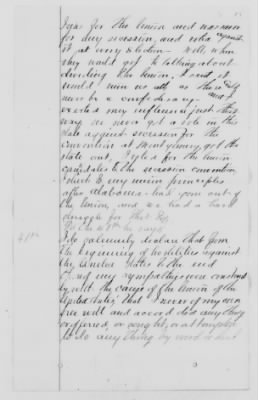 I was for the Union and was never
for any secession, and voted against
it at every election - Well, when
they would get to talking about
dividing the Union, I said it
would ruin us all, as there would
never be a confederacy - and I
exerted my influence just that
way. we never got a vote in this
state against secession for the
convention at Montgomery, got the
state out, I voted for the Union
candidates to the secession convention
I stuck to my Union principles
after Alabama had gone out of
the Union, and we had a hard
struggle for that
To the 41st he says
41st
I do solemnly declare that from
the beginning of hostilities against
the United States to the end
thereof my sympathies were constantly
with the cause of the Union of the
United States, that I never of my own
free will and accord did any thing
or offered, or sought, or attempted
to do anything by word or deed